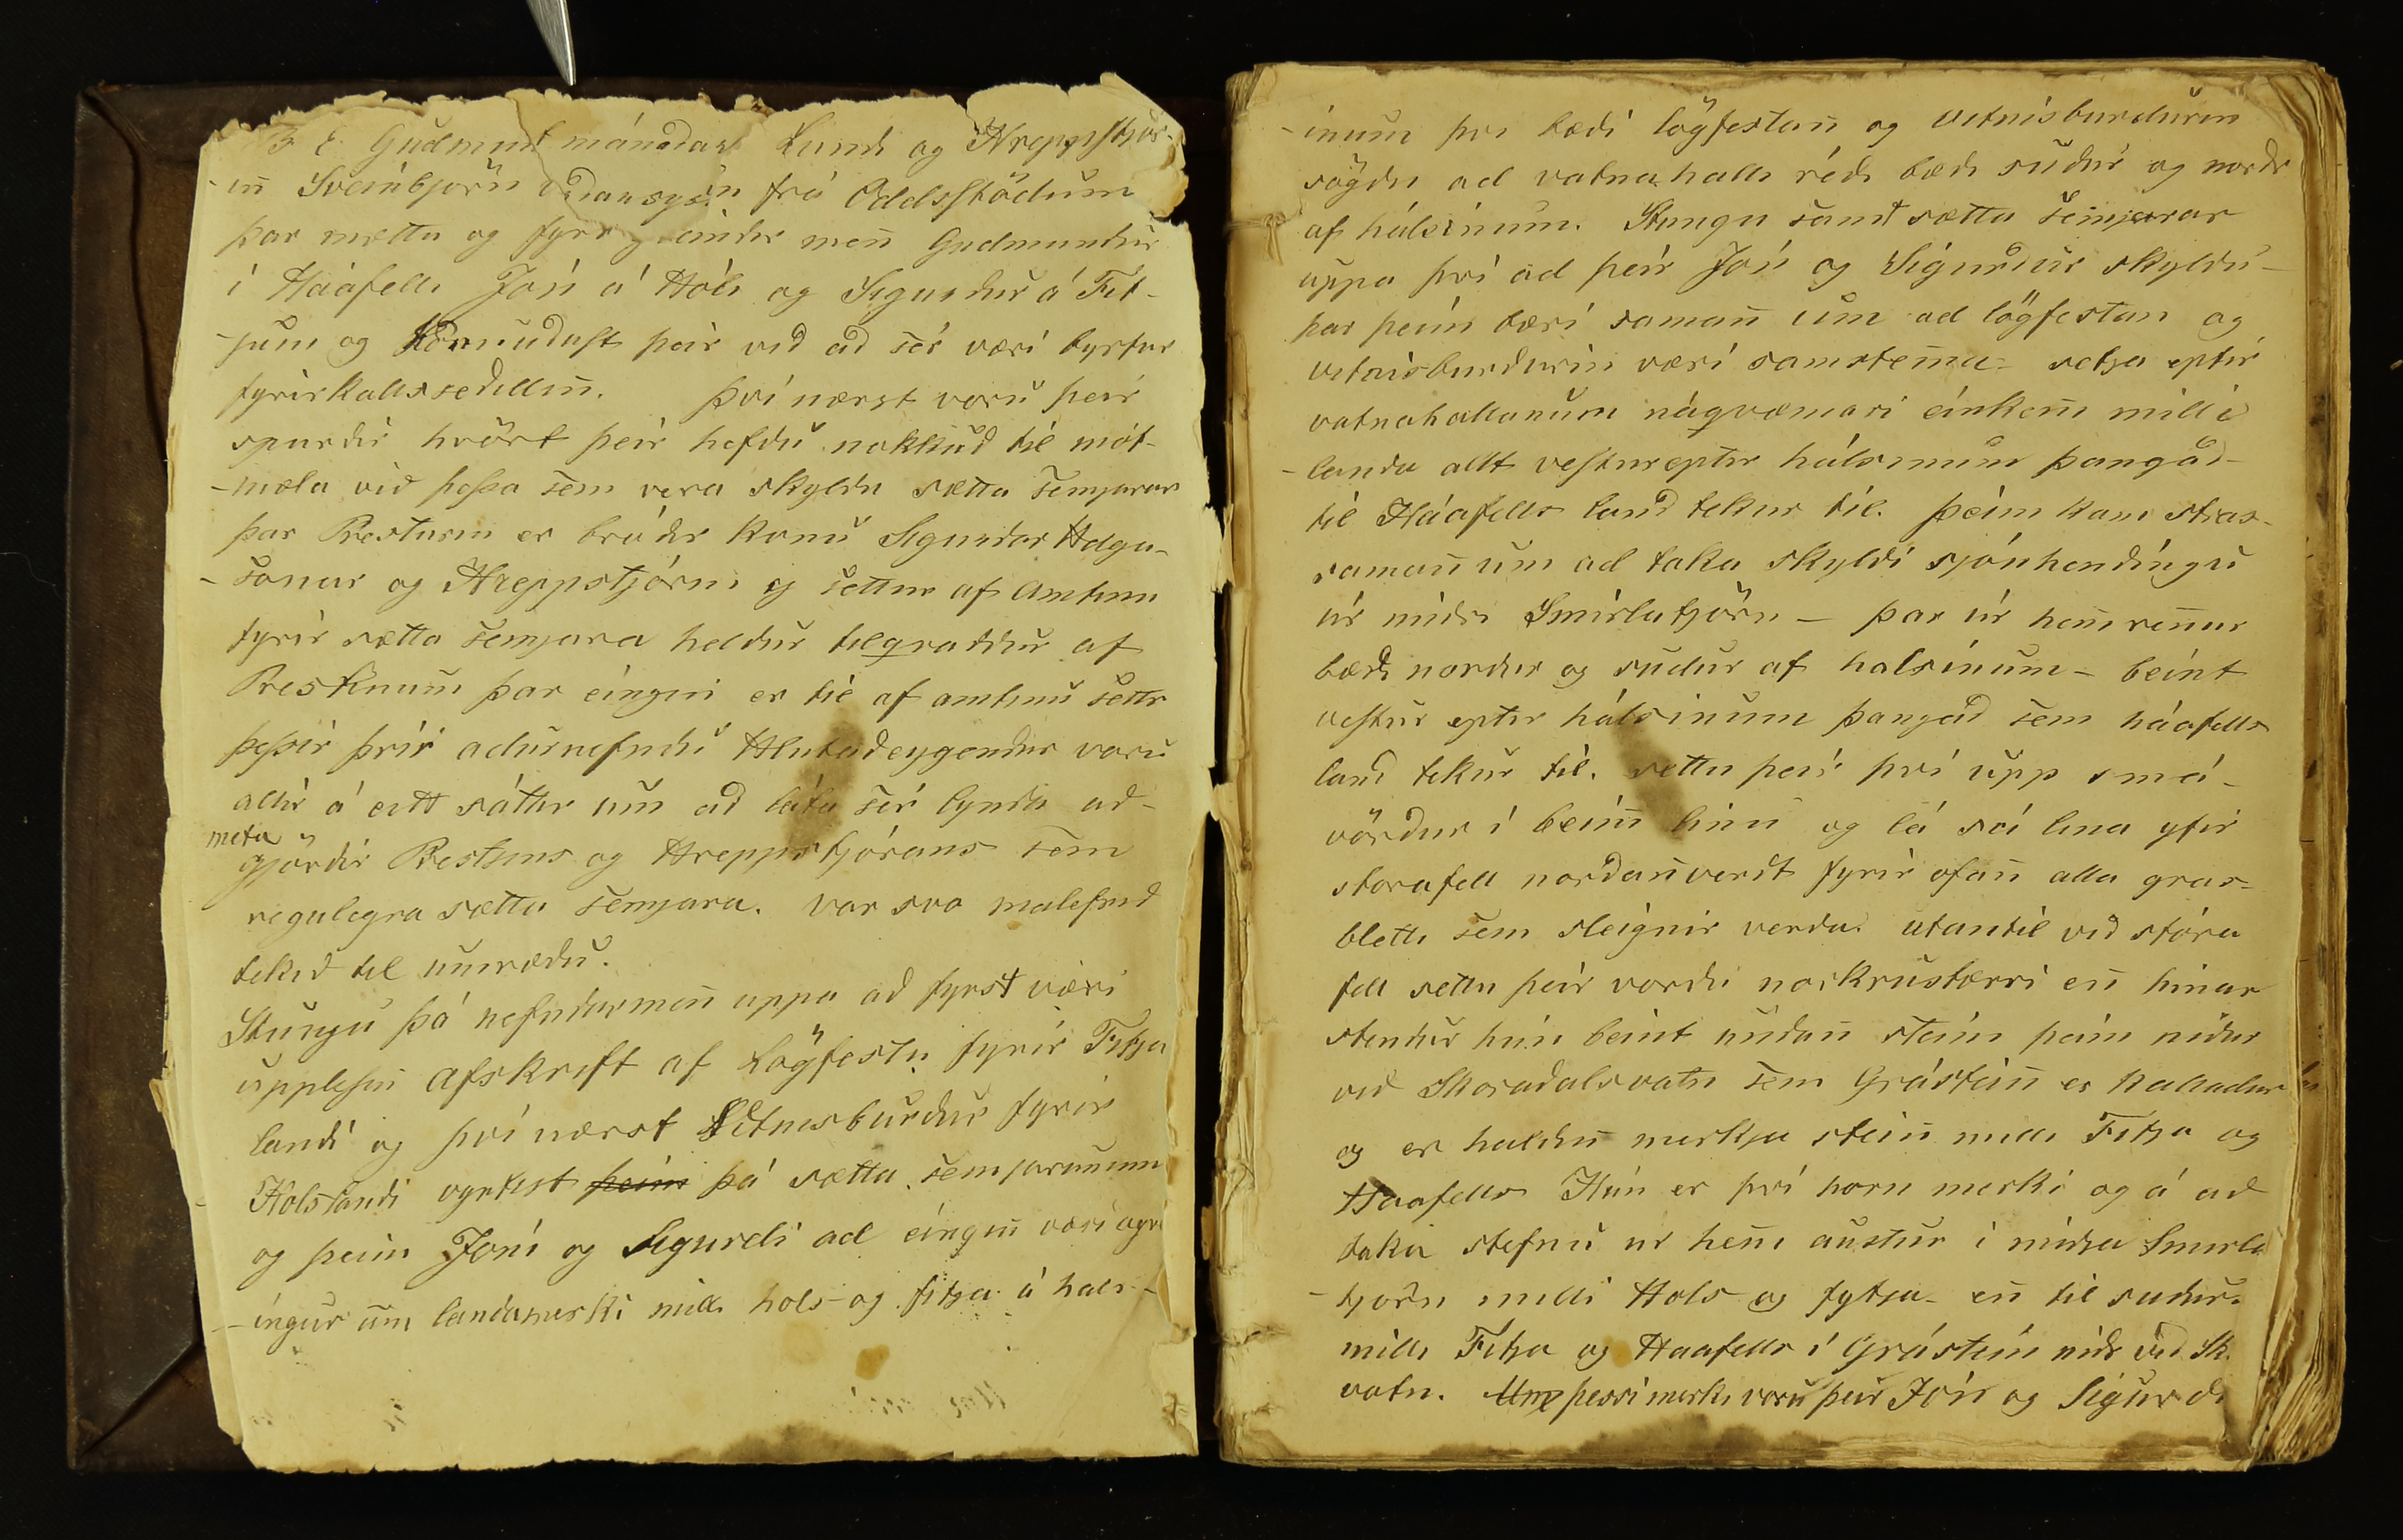 B E Gudmund mánadar Lundi og Hreppstjór-
-in̄ Sveinbjörn frá Oddsstödum
þar mættu og fyrr men̄ Gudmundur
í Háafelli Jón á Hóli og Sigurdur á Fit-
-jum og vid ad sér væri byrtur
fyrirkallssedillin̄. Því nærst voru þeir
spurdir hvört þeir hefdu nokkud til mót-
-mæla vid þessa sem vera skyldu sætta semjarar
þar Presturin er bródir konu Sigurdar Helga-
-sonar og Hreppstjórin ej settur af Amtinu
fyrir sætta semjara heldur tilqvaddur af
Prestinum þar eingin er til af amtinu settr
þessir þrír adurnefndu Hlutadeygendur voru
allir á eitt sáttir um ad láta sér lynda ad-
meta
gjördir Prestsins og Hreppstjórans sem
regulegra sætta semjara. var svo malefnid
tekid til umrædu.
Stungu þá nefndarmen̄ uppa ad fyrst væri
upplesin̄ afskrift af Lögfestu fyrir Fitja
landi og því nærst Vitnesburdur fyrir
Holslandi þeim þá sætta semjorunum
og þeim Jóni og Sigurdi ad eingin̄ væri agre
-ingur um landamerki milli hols og fitja á hals-
-inum þvi bædi lögfestan̄ og vitnisburdurin
sögdu ad vatnahalli rédi bædi sudur og nordr
af hálsinum. Stungu samt sætta semjarar
uppa því ad þeir Jón og Sigurdur skyldu-
þar þeim bæri saman̄ um ad lögfestan og
vitnisburdurin væri samstem̄a- setja eptir
vatnahallanum náqvæmari einken̄i milli
-landa allt vestureptir hálsinum þangad-
til Háafells land tekur til. þeim kom strax
saman̄ um ad taka skyldi sjónhendíngu
úr midri Smirlutjörn - þar úr hen̄i ren̄ur
bædi nordur og sudur af halsinum- beint
vestur eptir hálsinum þangad sem háafells
land tekur til. settu þeir því upp smá-
vördur í bein̄i linu og lá sú lina yfir
storafell nordan̄verdt fyrir ofan̄ alla gras-
bletti sem slegnir verda. utantil vid stóra
fell settu þeir vordu nockrustærri en̄ hinar
stendur hún beint undan̄ stein þeim nidur
vid Skoradalsvatn sem Grástein̄ er kalladur
og er haldin̄ merkja stein̄ milli Fitja og
Haafells Hún er því horn merki og á ad
taka stefnu ur hen̄i austur í midja Smirla
-tjorn milli Hols og fytja- en̄ til sudur.
milli Fitja og Haafells í Grástein nidr vid Sk.
vatn. Um þessi merki voru þeir Jón og Sigurdr